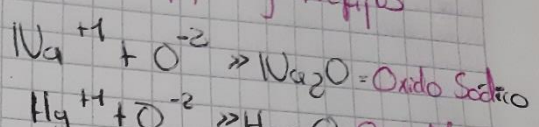 Na⁺¹ + O⁻² » Na₂O = Oxido Sódico
Hg⁺¹ + O⁻² »